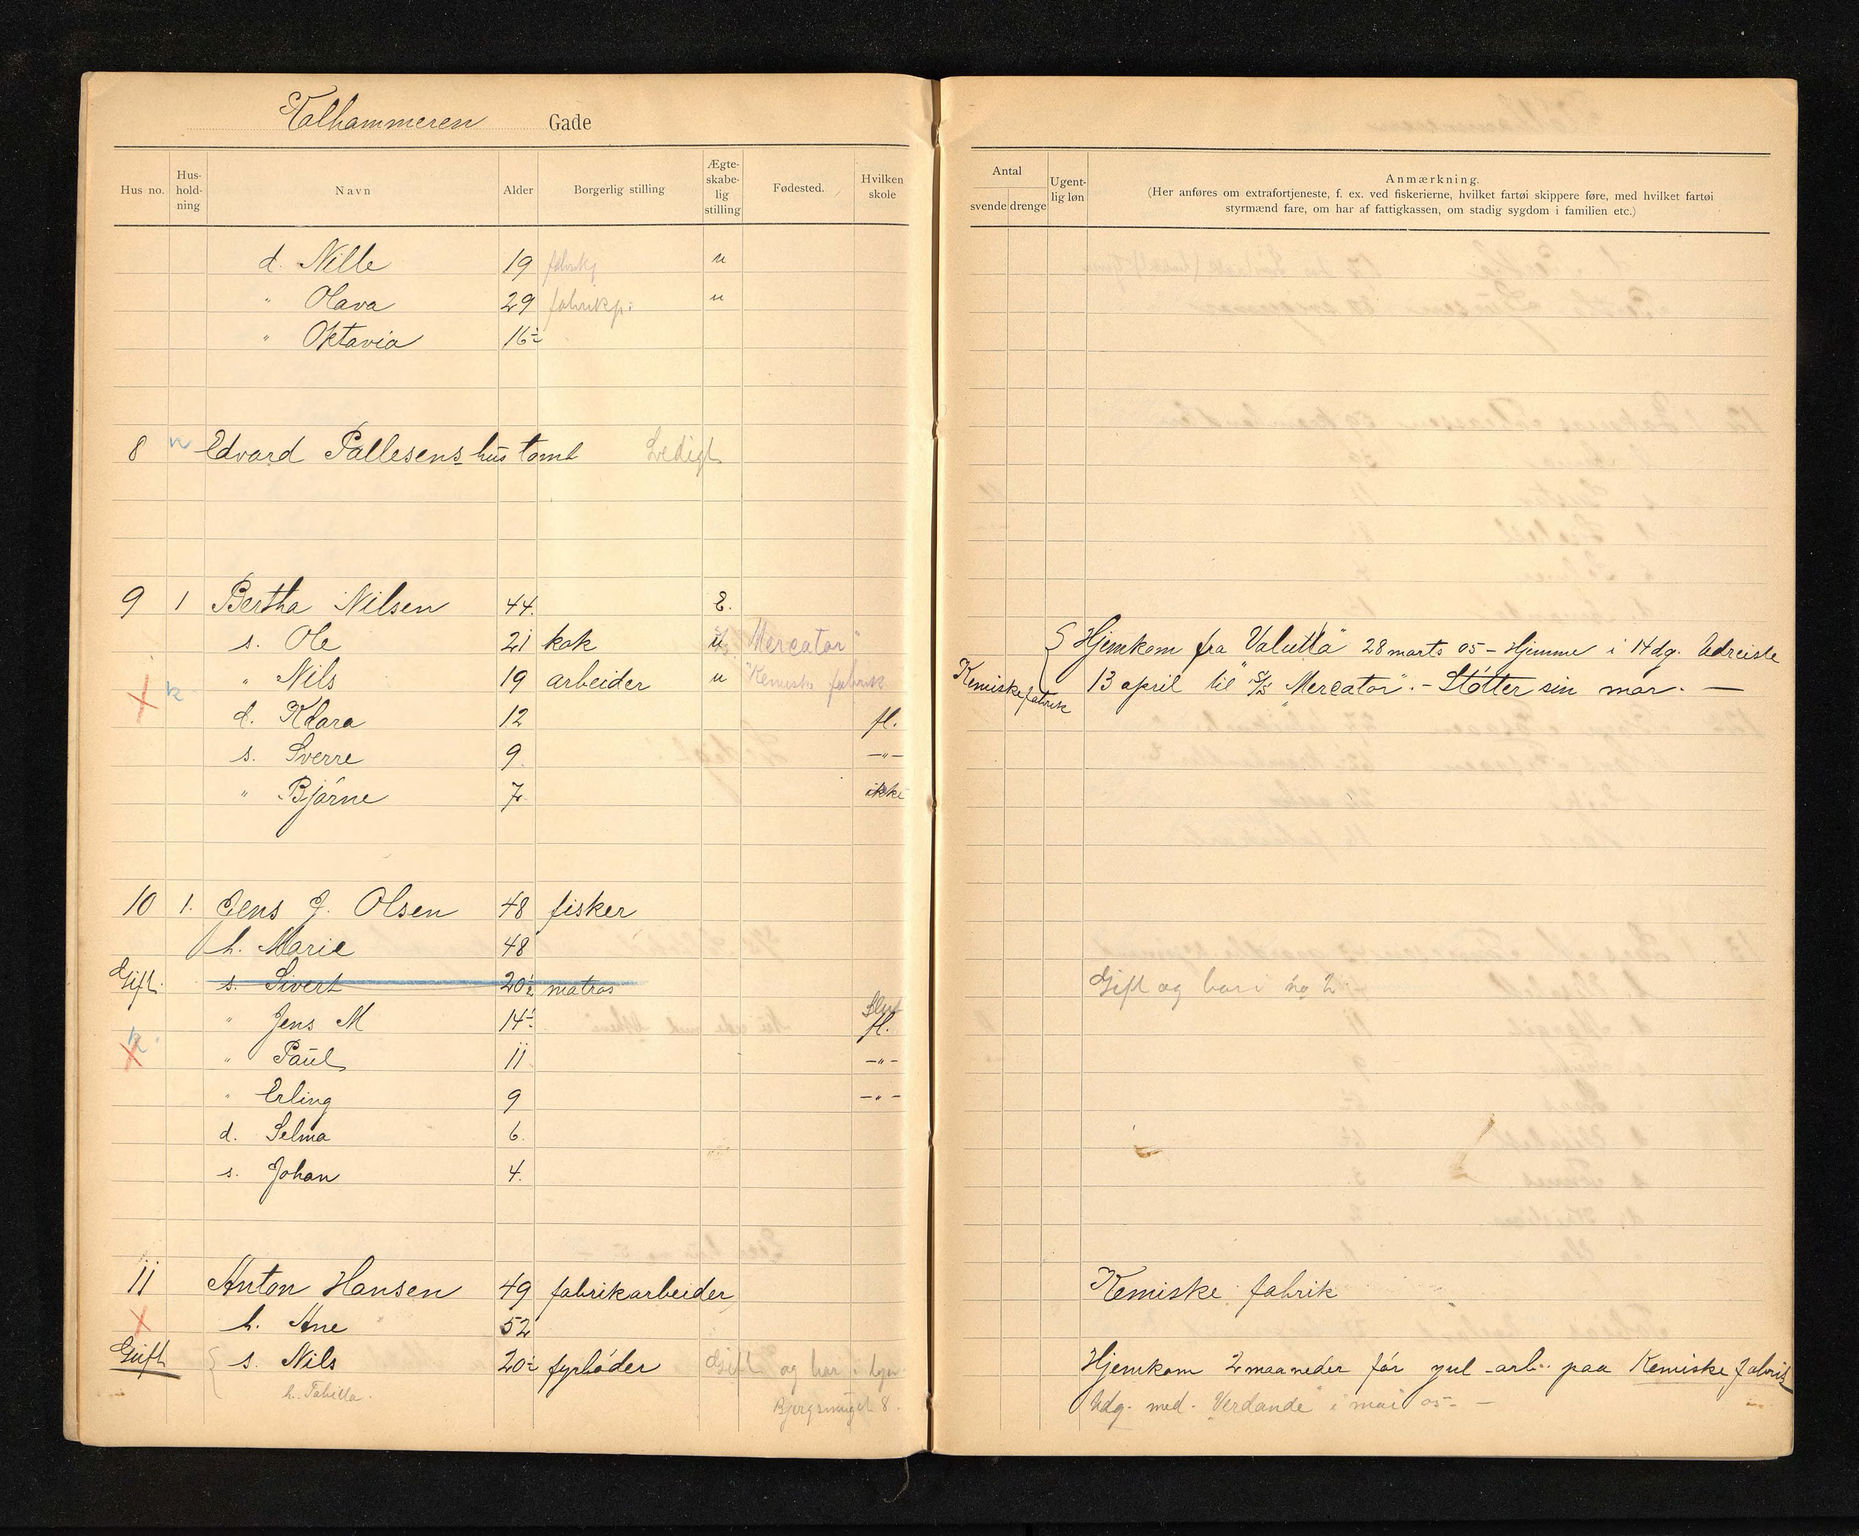 Kalhammeren Gade
Hus no. Hus-hold-ning Navn Alder Borgerlig stilling Ægte-skabe-lig stilling Fødested. Hvilken skole
d. Nille 19 fabrikp u
" Olava 29 fabrikp: u
" Oktavia 16½
8 Edvard Pallesens hus tomt Ledigt
9 1 Bertha Nilsen 44. E.
s. Ole 21 kok u "Mercator"
" Nils 19 arbeider u "Kemiske fabrik
d. Klara 12 fl.
s. Sverre 9. –"–
" Bjárne 7. ikke
10 1. Jens J. Olsen 48 fisker
h. Marie 48
Gift. s. Sivert 20½ matros
" Jens M 14½ Slut fl.
" Paul 11 –"–
" Erling 9 –"–
d. Selma 6.
s. Johan 4.
11 Anton Hansen 49 fabrikarbeider
h. Ane 52
Gift s. Nils 20½ fyrbøder Gift og bor i
h. Tabitta. Bjergsmuget 8.
Antal
svende drenge Ugent-lig løn
Anmærkning.
(Her anføres om extrafortjeneste, f. ex. ved fiskerierne, hvilket fartøi skippere føre, med hvilket fartøi
styrmænd fare, om har af fattigkassen, om stadig sygdom i familien etc.)
Hjemkom fra "Valutta" 28 marts 05 – Hjemme i 14 dg. Udreiste
13 april til S/S "Mercator". – Støtter sin mor. –
Kemiske fabrik
Gift og bor i no 2.
Kemiske fabrik
Hjemkom 2 maaneder før jul – arb. paa Kemiske fabrik
Udg. med. "Verdande" i mai 05 –